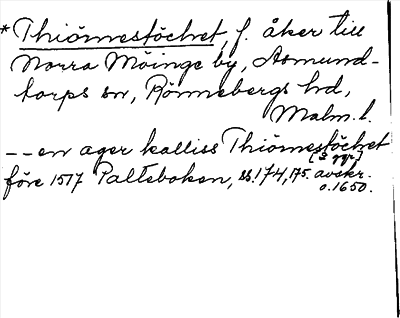 *Thiörnestöchet, f. åker till
Norra Möinge by, Asmund-
torps sn, Rönnebergs hd,
Malm. l.
-- en ager kalliss Thiörnestöchet
[3 ggr]
före 1517 Palteboken, ss. 174, 175. avskr.
o. 1650.